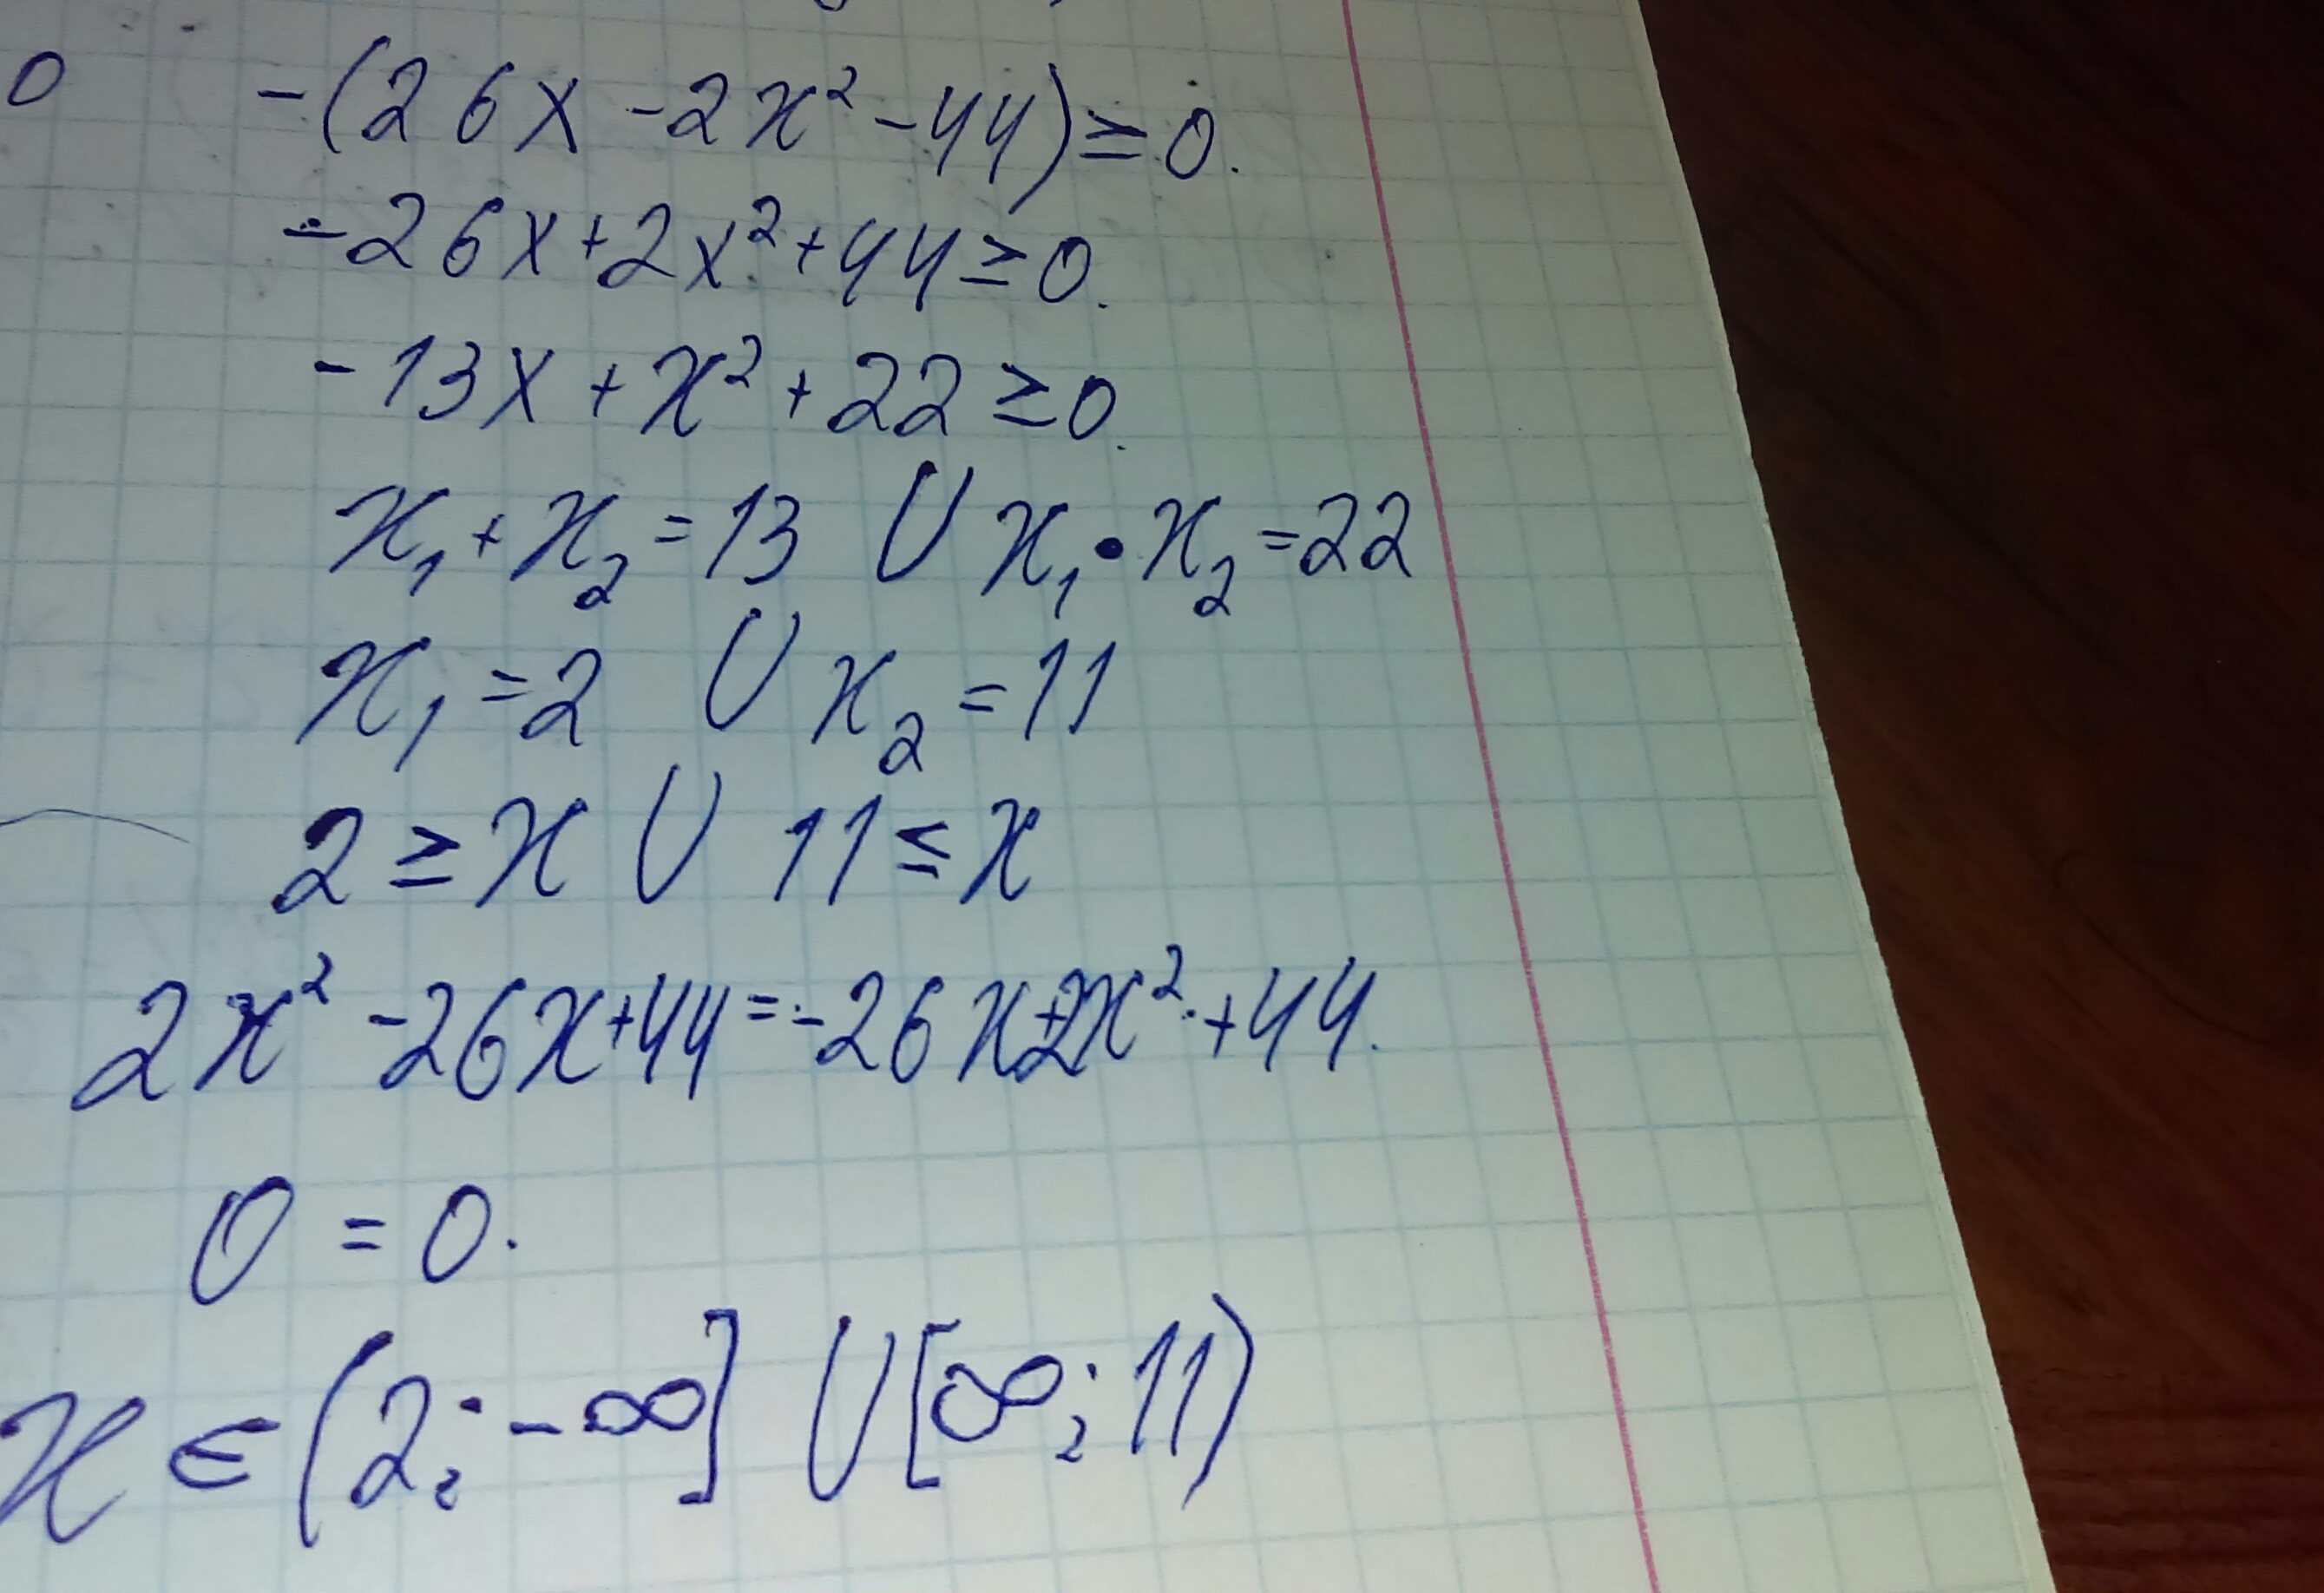 0 -(26x-2x²-44)≥0.
-26x+2x²+44≥0.
-13x+x²+22≥0.
x₁+x₂=13 U x₁•x₂=22
x₁=2 U x₂=11
2≥x U 11≤x
2x²-26x+44=-26x+2x²+44.
0=0.
x∈(2;-∞]U[∞;11)